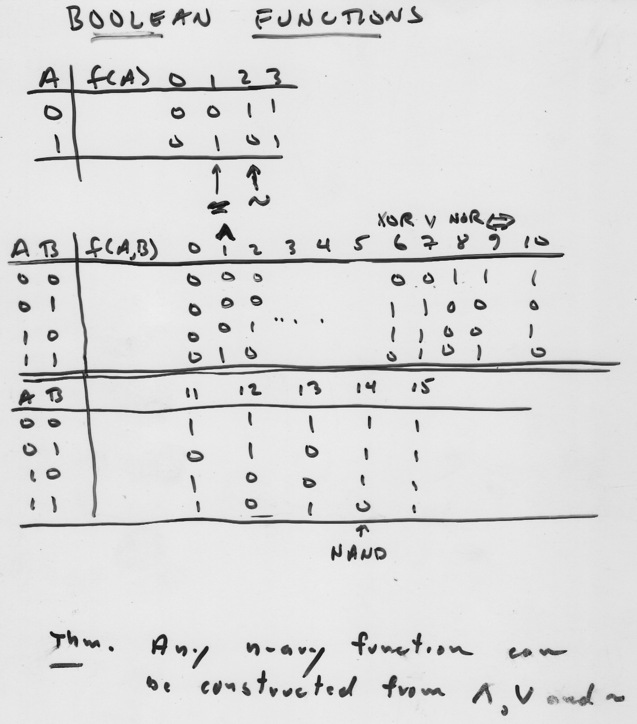 BOOLEAN FUNCTIONS
A f(A) 0 1 2 3
0 0 0 1 1
1 0 1 0 1
↑ ↑
= ~
∧ XOR ∨ NOR ⇔
A B f(A,B) 0 1 2 3 4 5 6 7 8 9 10
0 0 0 0 0 0 0 1 1 1
0 1 0 0 0 1 1 0 0 0
1 0 0 0 1 ... . 1 1 0 0 1
1 1 0 1 0 0 1 0 1 0
A B 11 12 13 14 15
0 0 1 1 1 1 1
0 1 0 1 0 1 1
1 0 1 0 0 1 1
1 1 1 0 1 0 1
↑
NAND
Thm. Any n-ary function can
be constructed from ∧, ∨ and ~